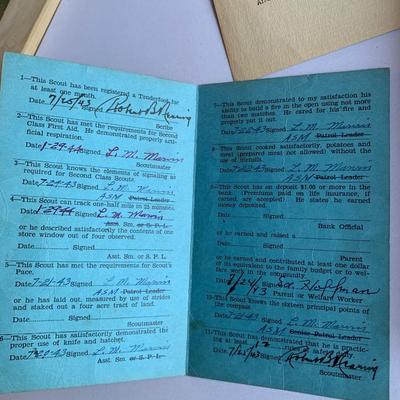 1—This Scout has been registered a Tenderfoot for
at least one month.
Date 7/25/43 Signed
Scribe
2—This Scout has met the requirements for Second
Class First Aid. He demonstrated properly arti-
ficial respiration.
Date 1-29-44 Signed L. M. Marvin
Scoutmaster
3—This Scout knows the elements of signaling as
required for Second Class Scouts.
Date 7-21-43 Signed L. M. Marvin
A S M Patrol Leader
4—This Scout can track one-half mile in 25 minutes.
Date Signed L. M. Marvin
Asst. Sm. or S. P. L.
or he described satisfactorily the contents of one
store window out of four observed.
Date Signed
Asst. Sm. or S. P. L.
5—This Scout has met the requirements for Scout's
Pace.
Date 7-21-43 Signed L. M. Marvin
A S M Patrol Leader
or he has laid out, measured by use of strides
and staked out a four acre tract of land.
Date Signed
Scoutmaster
6—This Scout has satisfactorily demonstrated the
proper use of knife and hatchet.
Date 7-20-43 Signed L. M. Marvin
Asst. Sm. or S. P. L.
7—This Scout demonstrated to my satisfaction his
ability to build a fire in the open using not more
than two matches. He cared for his fire and
properly put it out.
Date 7-20-43 Signed L. M. Marvin
A S M Patrol Leader
8—This Scout cooked satisfactorily, potatoes and
meat (prepared meat not allowed) without the
use of utensils.
Date 7-22-43 Signed L. M. Marvin
A S M Patrol Leader
9—This Scout has on deposit $1.00 or more in the
bank. (Premiums paid on life insurance, if
earned, are accepted). He states he earned
money deposited.
Date Signed
Bank Official
or he earned and raised a
Date Signed
Parent
or he earned and contributed at least one dollar
or its equivalent to the family budget or to wel-
work in the community.
Signed
Parent or Welfare Worker
10—This Scout knows the sixteen principal points of
the compass.
Date 7-21-43 Signed L. M. Marvin
A S M Patrol Leader
11—This Scout has demonstrated that he is practic-
ing at least 12 rules of safety.
Date 7/25/43 Signed
Scoutmaster.